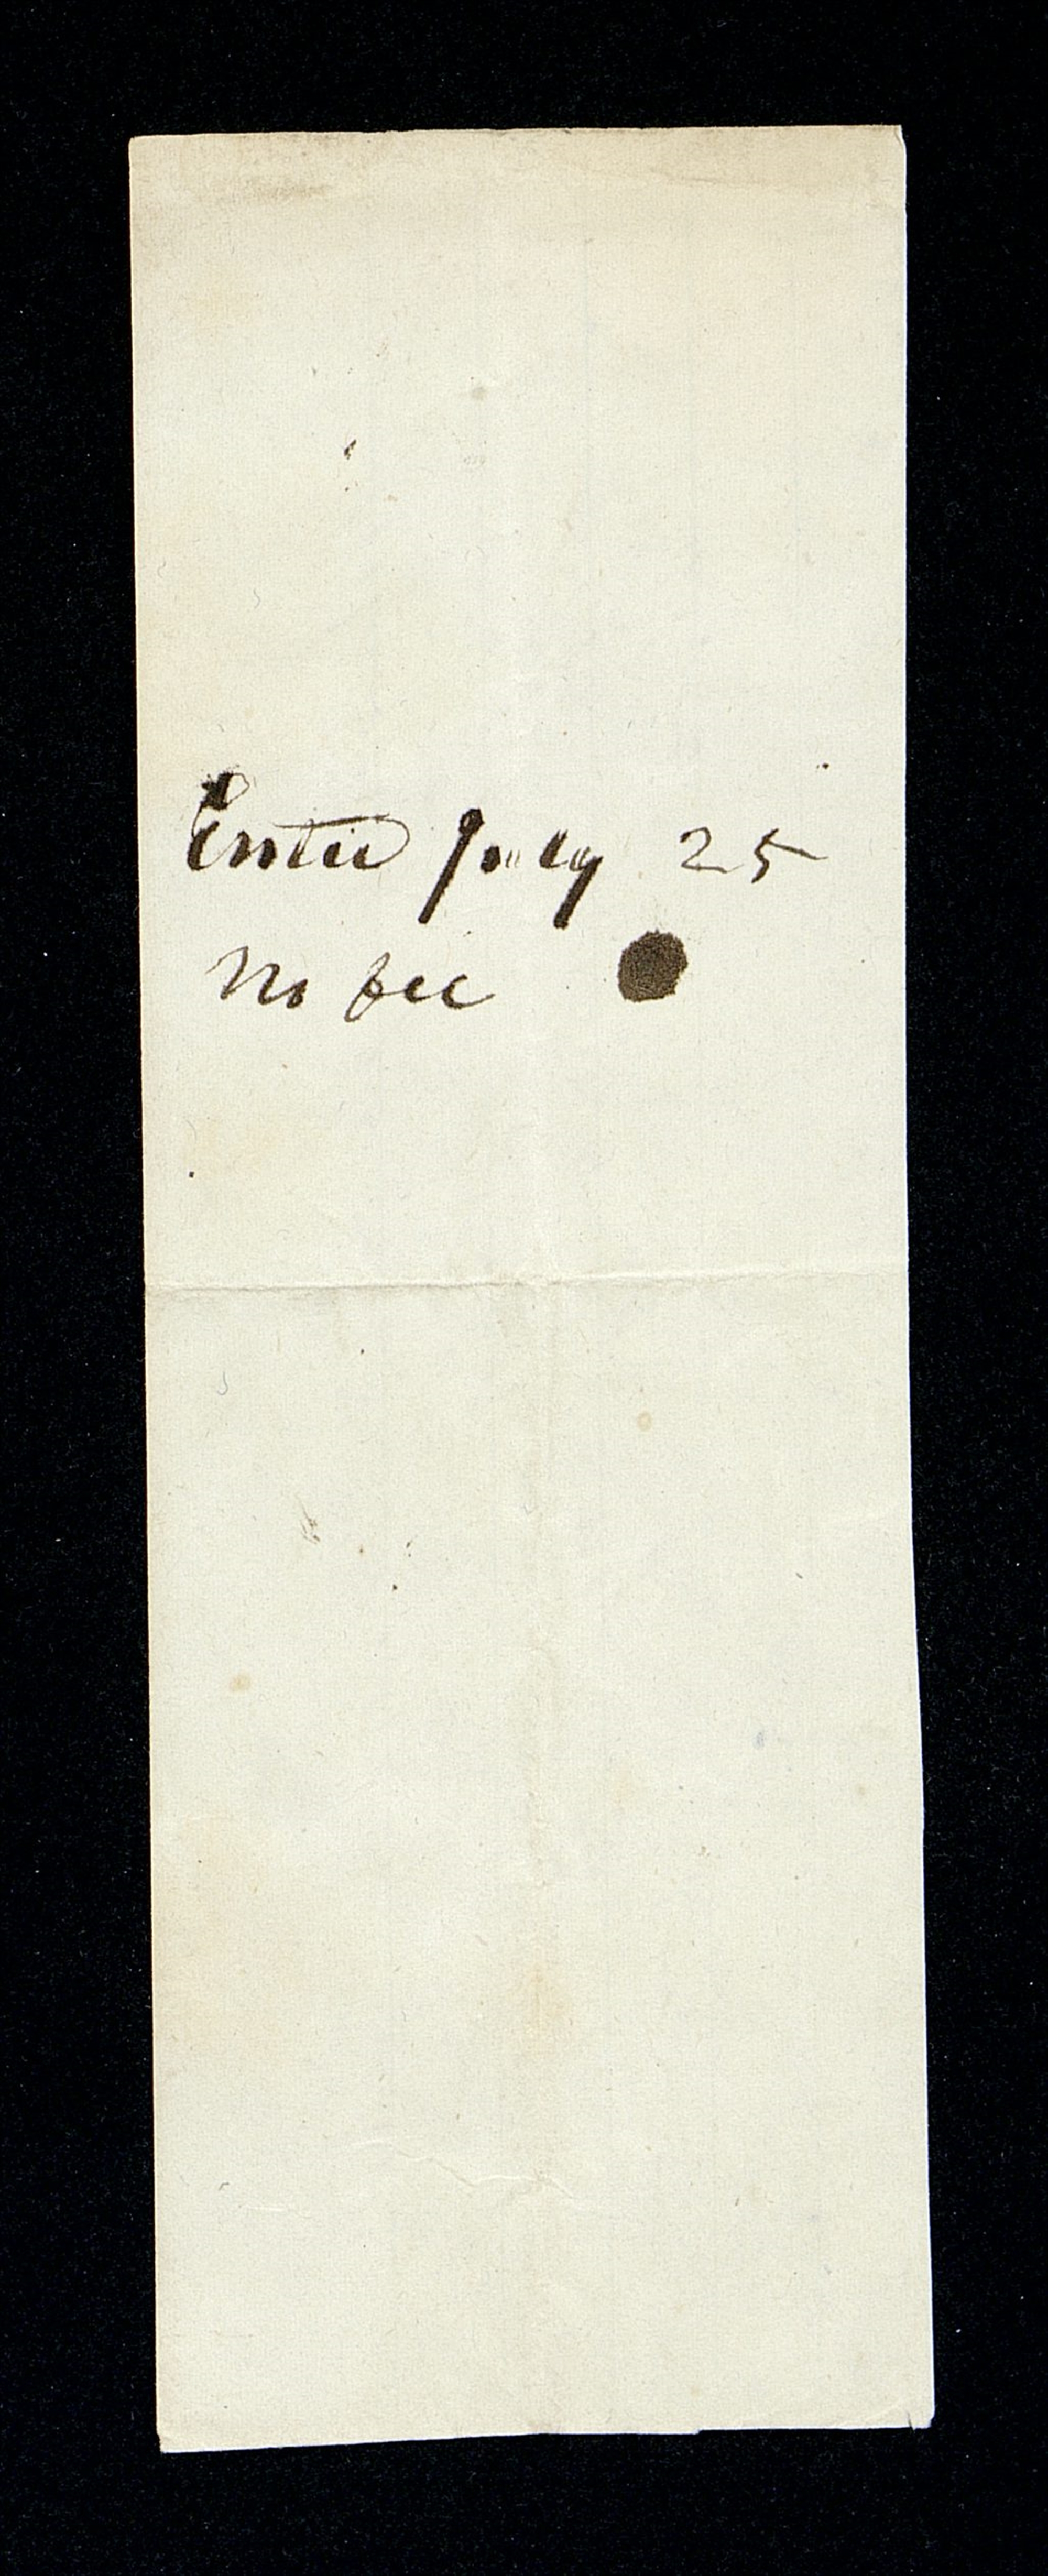 Enter July 25
No fee